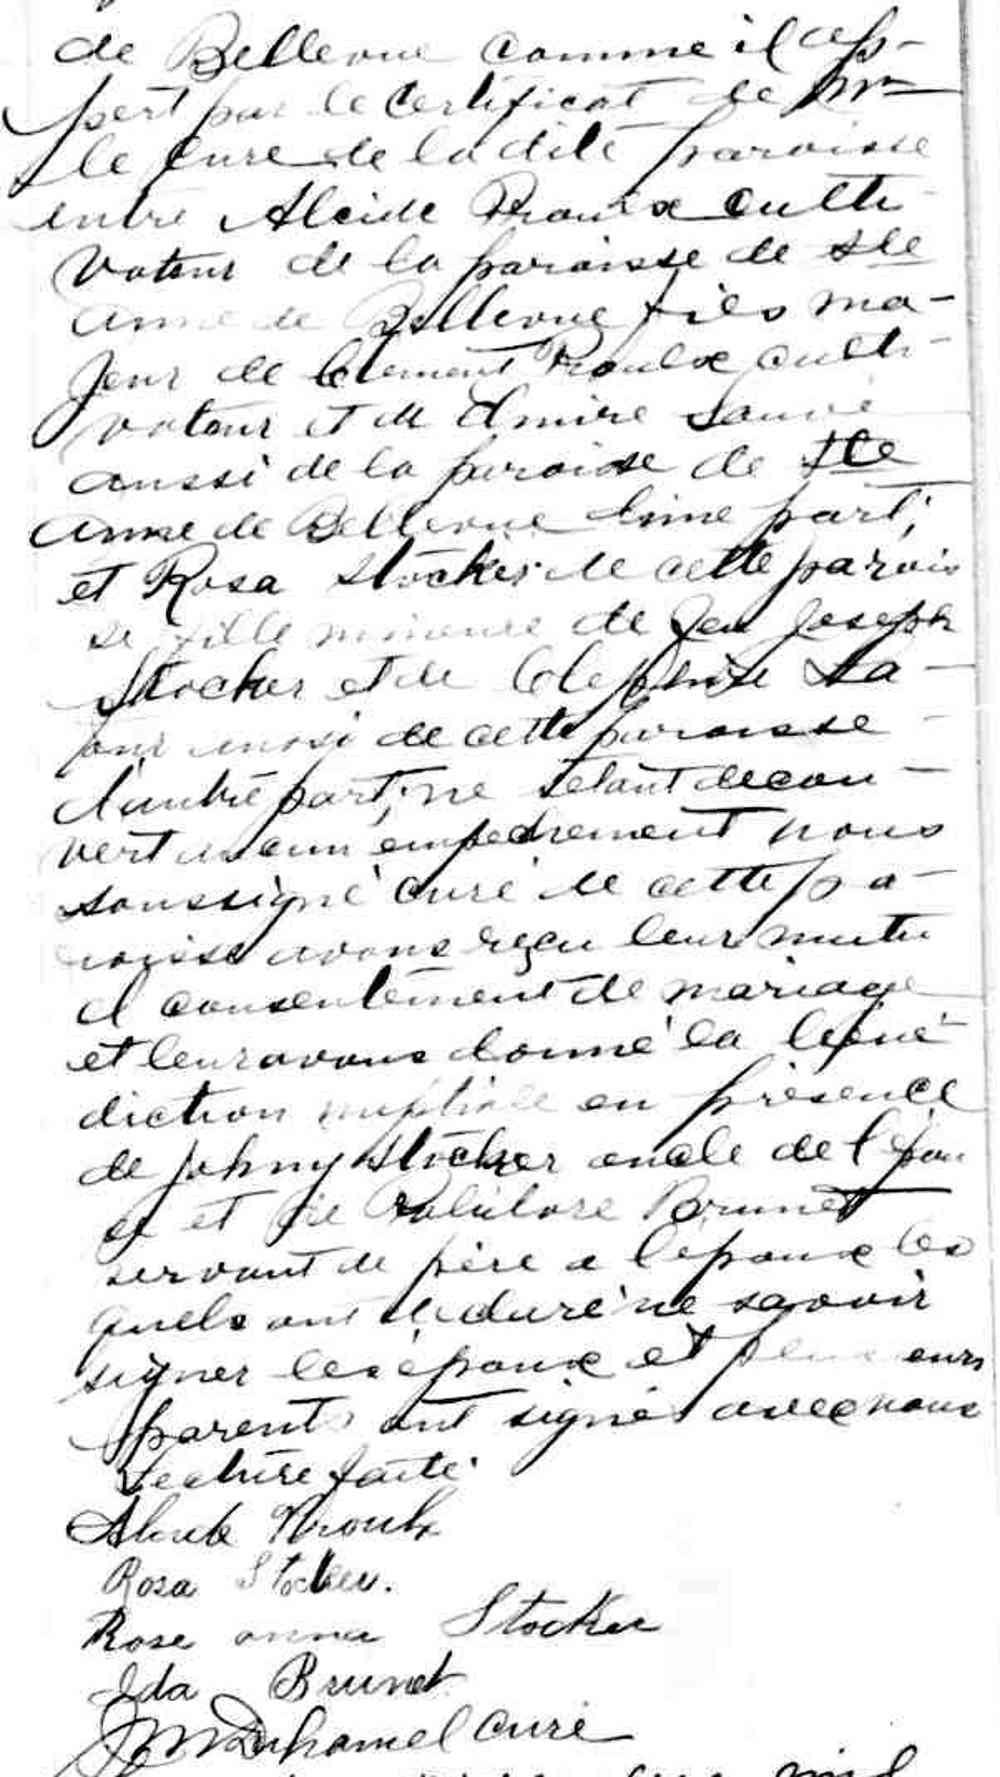 de Bellevue comme il ap-
pert par le Certificat de Mr
le Curé de la dite paroisse
entre Alcide Proulx culti-
vateur de la paroisse de Ste
Anne de Bellevue fils ma-
jeur de Clement Proulx culti-
vateur et de Elmire Sauvé
aussi de la paroisse de Ste
Anne de Bellevue d'une part;
et Rosa Stocker de cette parois
se fille mineure de feu Joseph
Stocker et de Cléphise La-
aussi de cette paroisse
d'autre part; ne s'étant décou-
vert aucun empêchement nous
soussigné curé de cette pa-
roisse avons reçu leur mutu
el consentement de mariage
et leur avons donné la béné-
diction nuptiale en présence
de Johny Stocker oncle de l'épou
se et de Brunet
servant de père a l'epoux les
quels ont déclaré ne savoir
signer les époux et plusieurs
parents ont signé avec nous
Lecture faite.
Alcide Proulx
Rosa Stocker.
Rose anna Stocker
Ida Brunet
Duhamel curé